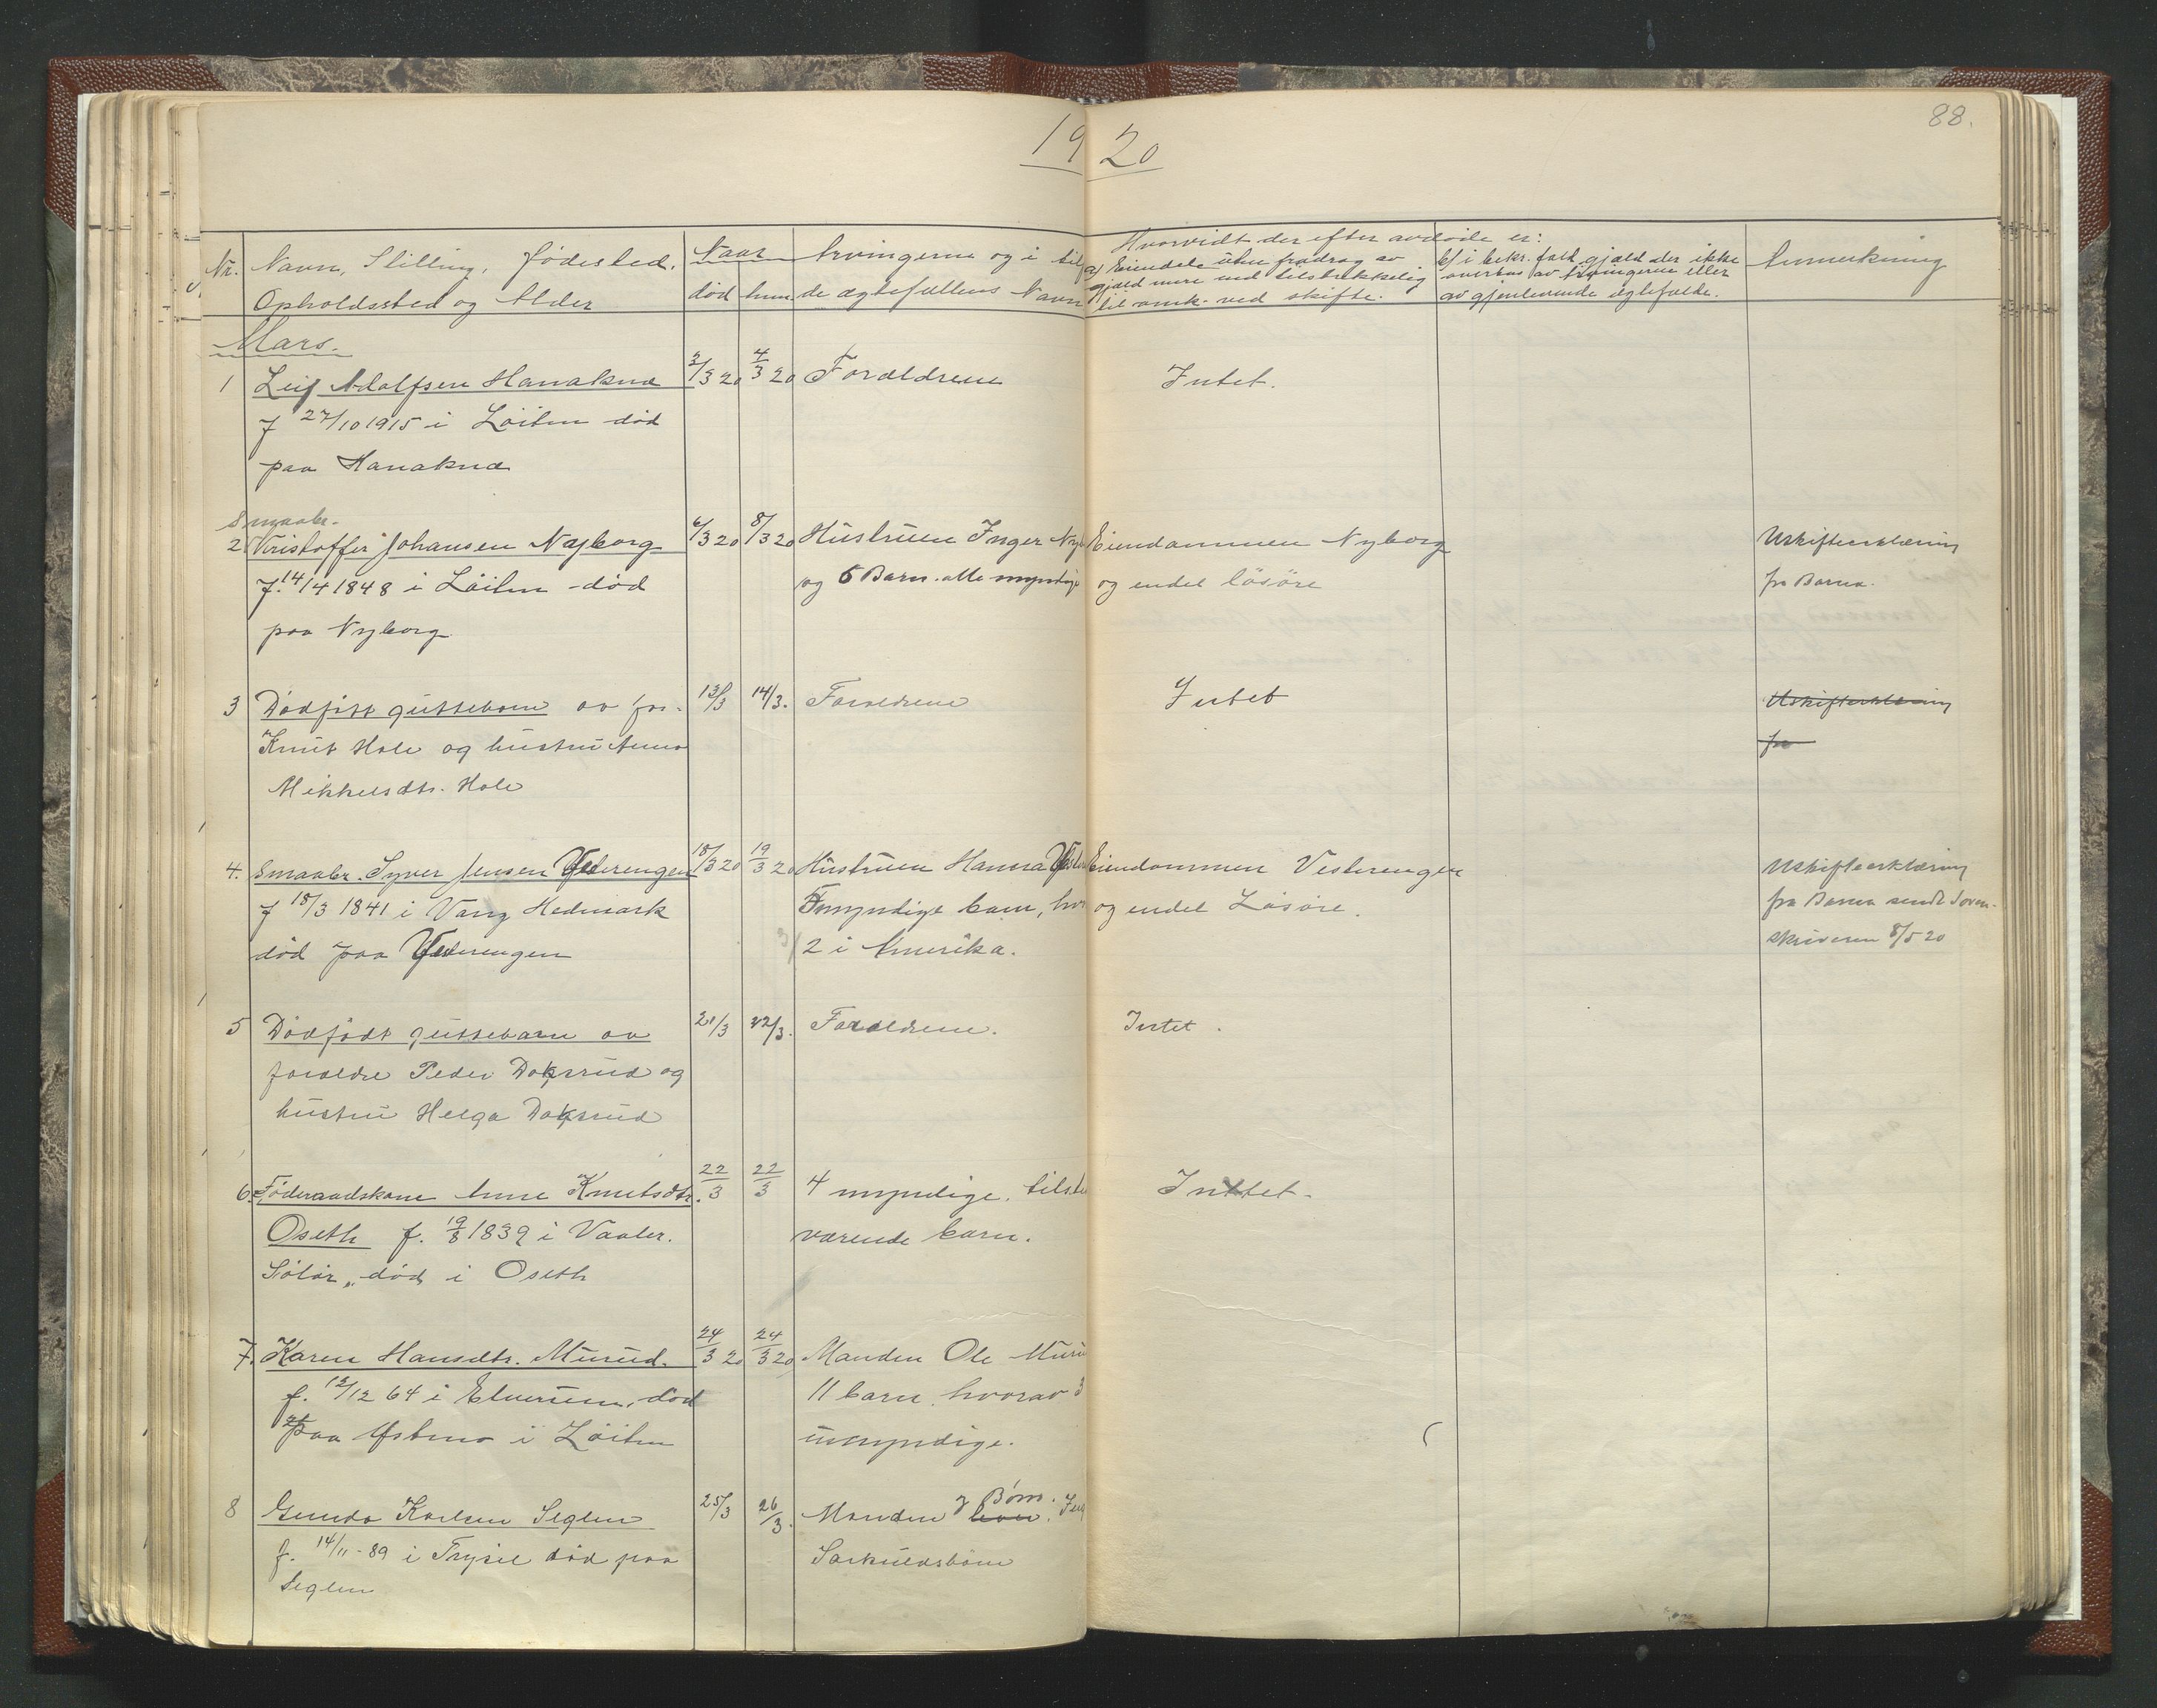 88.
1920
Nr. Navn, Stilling, Fødested, Opholdssted og Alder
Naar død
anm
Arvingerne og i til
de ægtefællens Navn
Hvorvidt der efter avdøde er:
a) Eiendele uten fradrag av
gjæld mere end tilstrekkelig
til omk. ved skifte.
b) i bekr. fald gjæld der ikke
overtas av arvingerne eller
av gjenlevende ægtefælde.
Anmerkning
Mars.
1 Leif Adolfsen Hanaknæ 3/3 20 4/3 20 Forældrene Intet.
f 27/10 1915 i Løiten død
paa Hanaknæ
Smaabr.
2 Kristoffer Johansen Nyborg 6/3 20 8/3 20 Hustruen Inger Ny Eiendommen Nyborg Uskifteerklæring
f. 14/4 1848 i Løiten død og 5 Barn. alle myndige og endel løsøre fra Barna.
paa Nyborg
3 Dødfødt guttebarn av for. 13/3 14/3. Forældrene Intet Uskifteerklæring
Knut Hole og hustru Anna fra
Mikkelsdtr. Hole
4. Smaabr. Syver Jensen Vesterengen 18/3 20 19/3 20 Hustruen Hanna Vester Eiendommen Vesterengen Uskifteerklæring
f 18/3 1841 i Vang Hedmark myndige barn, hvor og endel Løsøre. fra Barna sendt Soren-
død paa Vesterengen 2 i Amerika. skriveren 8/5 20
5 Dødfødt guttebarn av 21/3 22/3. Forældrene. Intet.
forældre Peder Dokserud og
hustru Helga Dokserud
6. Føderaadskone Anne Knutsdtr. 22/3 22/3 4 myndige. tilstede Inttet.
Oseth f. 19/8 1839 i Vaaler. værende barn.
Solør, død i Oseth
7. Karen Hansdtr. Murud. 24/3 20 24/3 20 Manden Ole Muru
f. 12/12 64 i Elverum, død 11 barn, hvorav 3
paa Østmo i Løiten umyndige.
8 Gunda Karlsen Seglen 25/3 26/3. Manden og Børn.
f. 14/11 - 89 i Trysil død paa Særkuldsbørn
Seglen